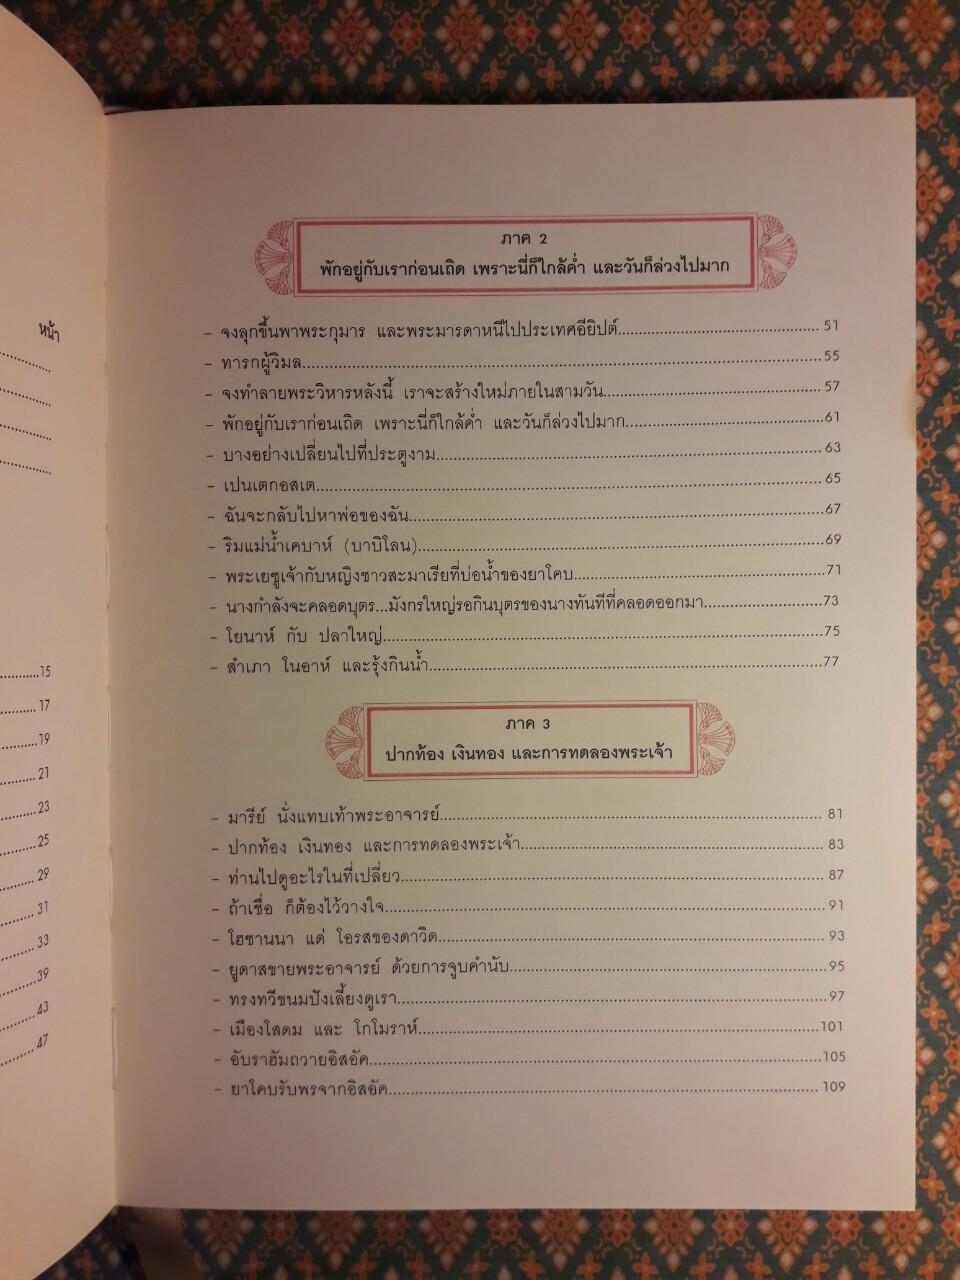 หน้า
15
17
19
21
23
25
29
31
33
39
43
47
ภาค 2
พักอยู่กับเราก่อนเถิด เพราะนี่ก็ใกล้ค่ำ และวันก็ล่วงไปมาก
- จงลุกขึ้นพาพระกุมาร และพระมารดาหนีไปประเทศอียิปต์ 51
- ทารกผู้วิมล 55
- จงทำลายพระวิหารหลังนี้ เราจะสร้างใหม่ภายในสามวัน 57
- พักอยู่กับเราก่อนเถิด เพราะนี่ก็ใกล้ค่ำ และวันก็ล่วงไปมาก 61
- บางอย่างเปลี่ยนไปที่ประตูงาม 63
- เปนเตกอสเต 65
- ฉันจะกลับไปหาพ่อของฉัน 67
- ริมแม่น้ำเคบาห์ (บาบิโลน) 69
- พระเยซูเจ้ากับหญิงชาวสะมาเรียที่บ่อน้ำของยาโคบ 71
- นางกำลังจะคลอดบุตร...มังกรใหญ่รอกินบุตรของนางทันทีที่คลอดออกมา 73
- โยนาห์ กับ ปลาใหญ่ 75
- สำเภา โนอาห์ และรุ้งกินน้ำ 77
ภาค 3
ปากท้อง เงินทอง และการทดลองพระเจ้า
- มารีย์ นั่งแทบเท้าพระอาจารย์ 81
- ปากท้อง เงินทอง และการทดลองพระเจ้า 83
- ท่านไปดูอะไรในที่เปลี่ยว 87
- ถ้าเชื่อ ก็ต้องไว้วางใจ 91
- โฮซานนา แด่ โอรสของดาวิด 93
- ยูดาสขายพระอาจารย์ ด้วยการจูบคำนับ 95
- ทรงทวีขนมปังเลี้ยงดูเรา 97
- เมืองโสดม และ โกโมราห์ 101
- อับราฮัมถวายอิสอัค 105
- ยาโคบรับพรจากอิสอัค 109